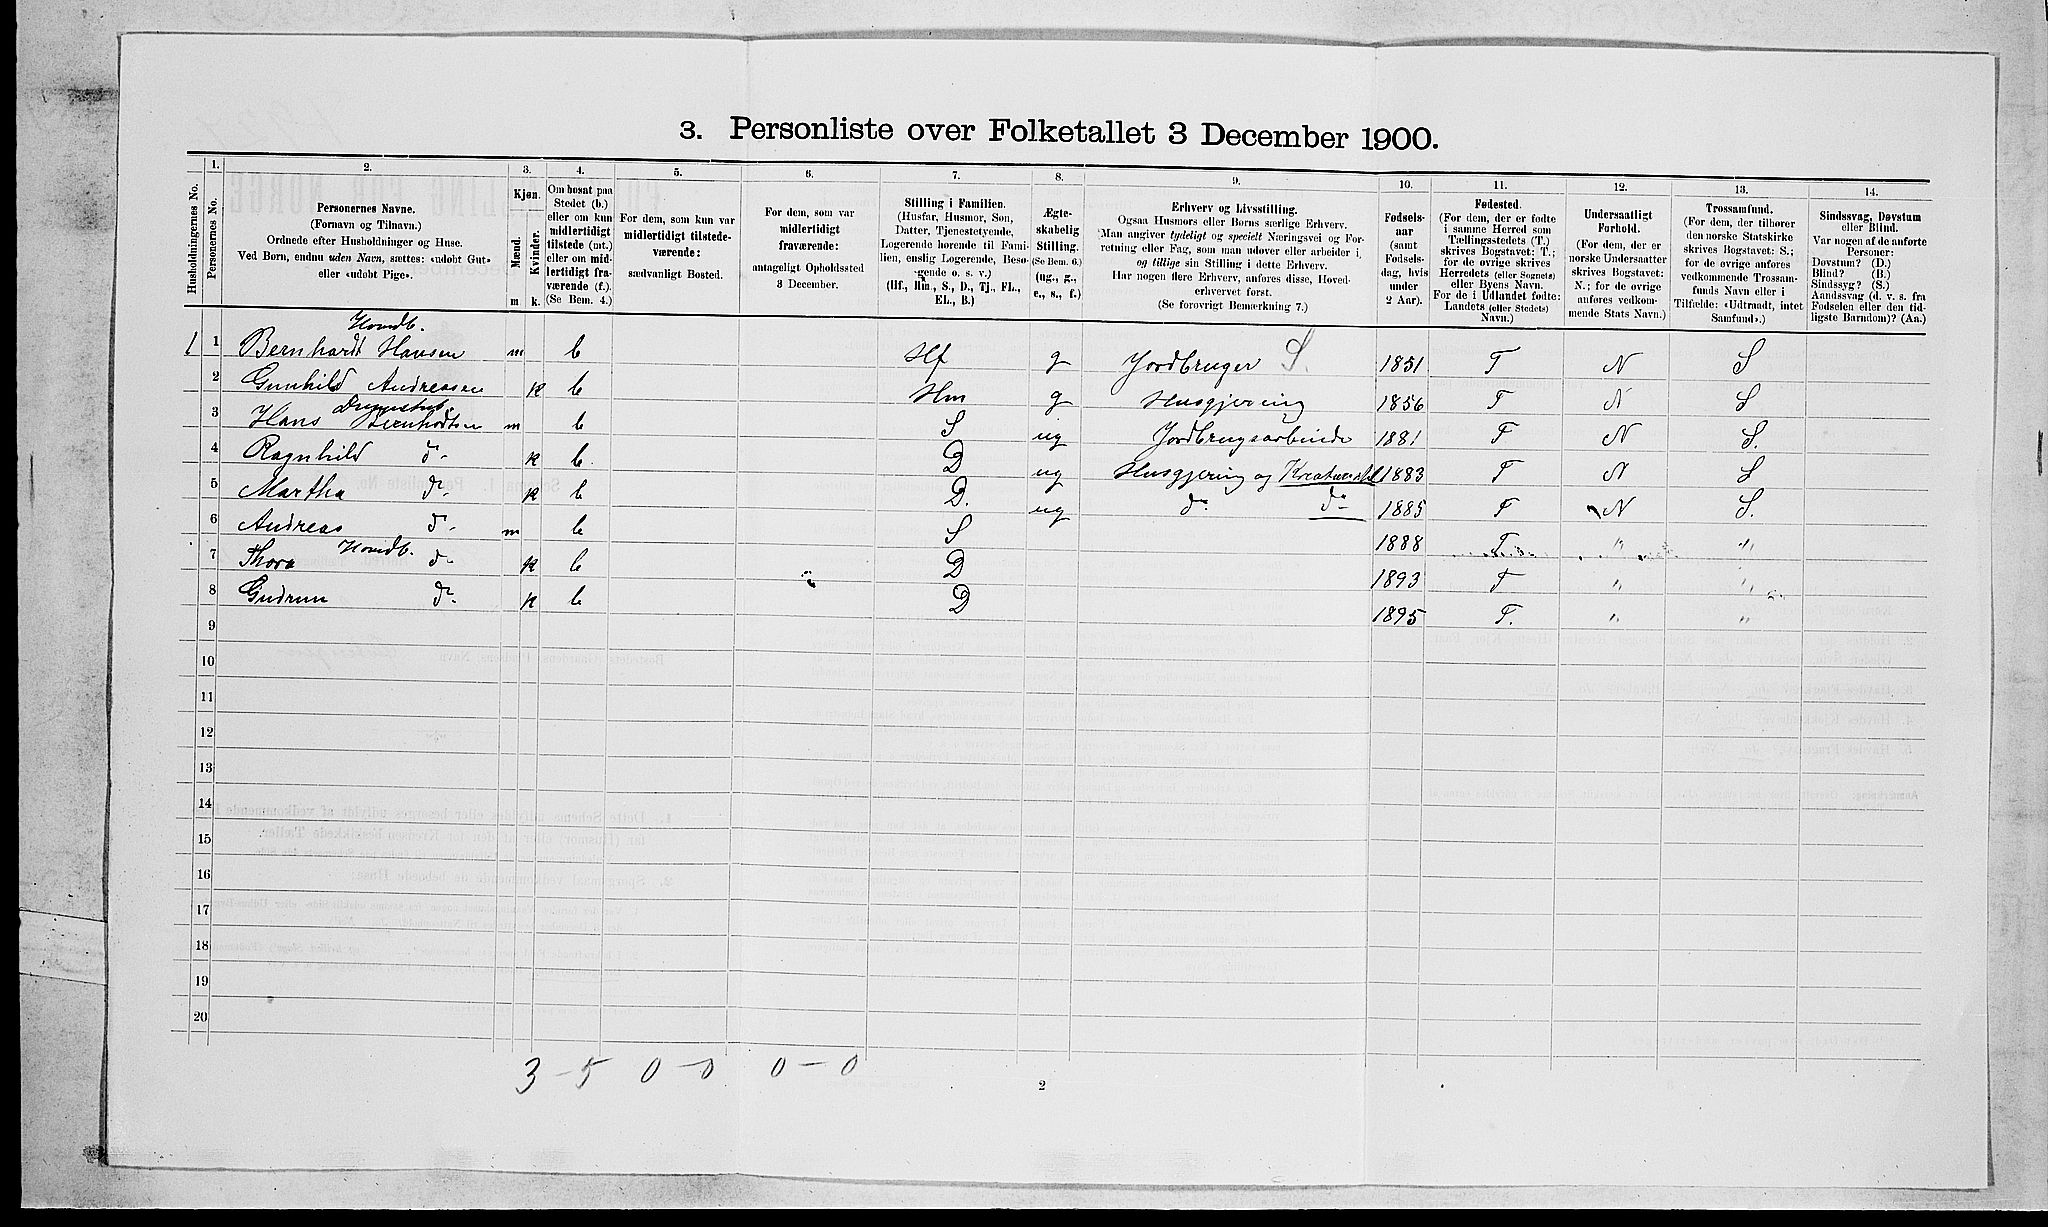 3. Personliste over Folketallet 3 December 1900.
1. 2. 3. 4. 5. 6. 7. 8. 9. 10. 11. 12. 13. 14.
Husholdningernes No.
Personernes No.
Personernes Navne.
(Fornavn og Tilnavn.)
Ordnede efter Husholdninger og Huse.
Ved Børn, endnu uden Navn, sættes: «udobt Gut»
eller «udobt Pige».
Kjøn.
Mænd.
Kvinder.
m k.
Om bosat paa
Stedet (b.)
eller om kun
midlertidigt
tilstede (mt.)
eller om mid-
lertidigt fra-
værende (f.).
(Se Bem. 4.)
For dem, som kun var
midlertidigt tilstede-
værende:
sædvanligt Bosted.
For dem, som var
midlertidigt
fraværende:
antageligt Opholdssted
3 December.
Stilling i Familien.
(Husfar, Husmor, Søn,
Datter, Tjenestetyende,
Logerende hørende til Fami-
lien, enslig Logerende, Besø-
gende o. s. v.)
(Hf., Hm., S., D., Tj., FL.,
EL., B.)
Ægte-
skabelig
Stilling.
(Se Bem. 6.)
(ug., g.,
e., s., f.)
Erhverv og Livsstilling.
Ogsaa Husmors eller Børns særlige Erhverv.
Man angiver tydeligt og specielt Næringsvei og For-
retning eller Fag, som man udøver eller arbeider i,
og tillige sin Stilling i dette Erhverv.
Har nogen flere Erhverv, anføres disse, Hoved-
erhvervet først.
(Se forøvrigt Bemærkning 7.)
Fødsels-
aar
(samt
Fødsels-
dag, hvis
under
2 Aar).
Fødested.
(For dem, der er fødte
i samme Herred som
Tællingsstedets (T.)
skrives Bogstavet: T.;
for de øvrige skrives
Herredets (eller Sognets)
eller Byens Navn.
For de i Udlandet fødte:
Landets (eller Stedets)
Navn.)
Undersaatligt
Forhold.
(For dem, der er
norske Undersaatter
skrives Bogstavet:
N.; for de øvrige
anføres vedkom-
mende Stats Navn.)
Trossamfund.
(For dem, der tilhører
den norske Statskirke
skrives Bogstavet: S.;
for de øvrige anføres
vedkommende Trossam-
funds Navn eller i
Tilfælde: «Udtraadt, intet
Samfund».)
Sindssvag, Døvstum
eller Blind.
Var nogen af de anførte
Personer:
Døvstum? (D.)
Blind? (B.)
Sindssyg? (S.)
Aandssvag (d. v. s. fra
Fødselen eller den tid-
ligste Barndom)? (Aa.)
Hovedb.
1 1 Bernhardt Hansen m b Hf g Jordbruger S. 1851 T N S
2 Gunhild Andreasen k b Hm g Husgjerning 1856 T N S
3 Hans Bernhodtsen m b S ug Jordbrugsarbeide 1881 T N S.
4 Ragnhild do k b. D ug Husgjerning og Kreaturstel 1883 T N S
5 Martha do k b D. ug do do 1885 T N S.
6 Andreas do m b S 1888 T " "
Hovedb.
7 Thora do k b D 1893 T " "
8 Gudrun do k b D 1895 T. " "
9
10
11
12
13
14
15
16
17
18
19
20
3 - 5 0 - 0 0 - 0
2